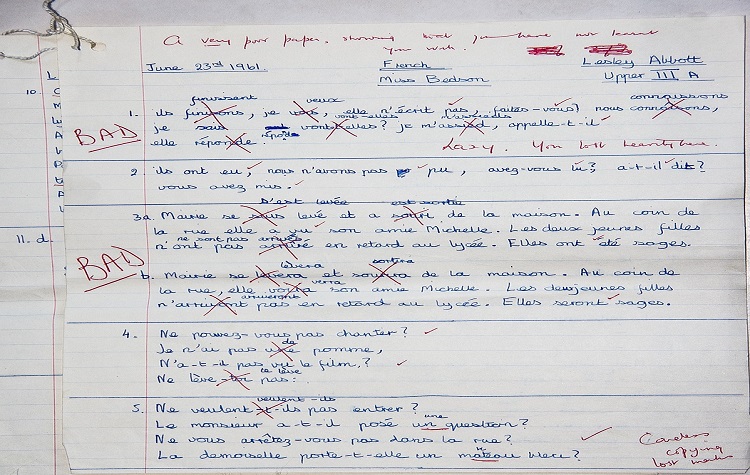 A very poor paper. showing that you have not learnt
your work.
June 23rd 1961. French Lesley Abbott
Miss Bedson Upper III A
10.
finissent veux connaissons
1. ils finirons, je vois, elle n'écrit pas, faites-vous? nous connaitrons,
vont-elles m'assieds
BAD je suis vont-elles? je m'assied, appelle-t-il
répond
elle réponde. Lazy. You lost heavily here.
2 ils ont eu, nous n'avons pas pu, avez-vous lu? a-t-il dit?
vous avez mis.
s'est levée est sortie
3a. Mairie se suis levé et a souri de la maison. Au coin de
la rue elle a vu son amie Michelle. Les deux jeunes filles
ne sont pas arrivées
11. d. n'ont pas arrivé en retard au lycée. Elles ont été sages.
BAD
lèvera sortira
b. Mairie se levera et souira de la maison. Au coin de
verra
la rue, elle voira son amie Michelle. Les deux jeunes filles
arriveront
n'arrivont pas en retard au lycée. Elles seront sages.
4. Ne pouvez-vous pas chanter?
de
Je n'ai pas une pomme,
N'a-t-il pas vu le film,?
te lève
Ne lève-toi pas:
veulent-ils
5. Ne veulent-t-ils pas entrer?
une
Le monsieur a-t-il posé un question?
Ne vous arrêtez-vous pas dans la rue?
La demoiselle porte-t-elle un mateau bleu?
Careless
copying
lost marks